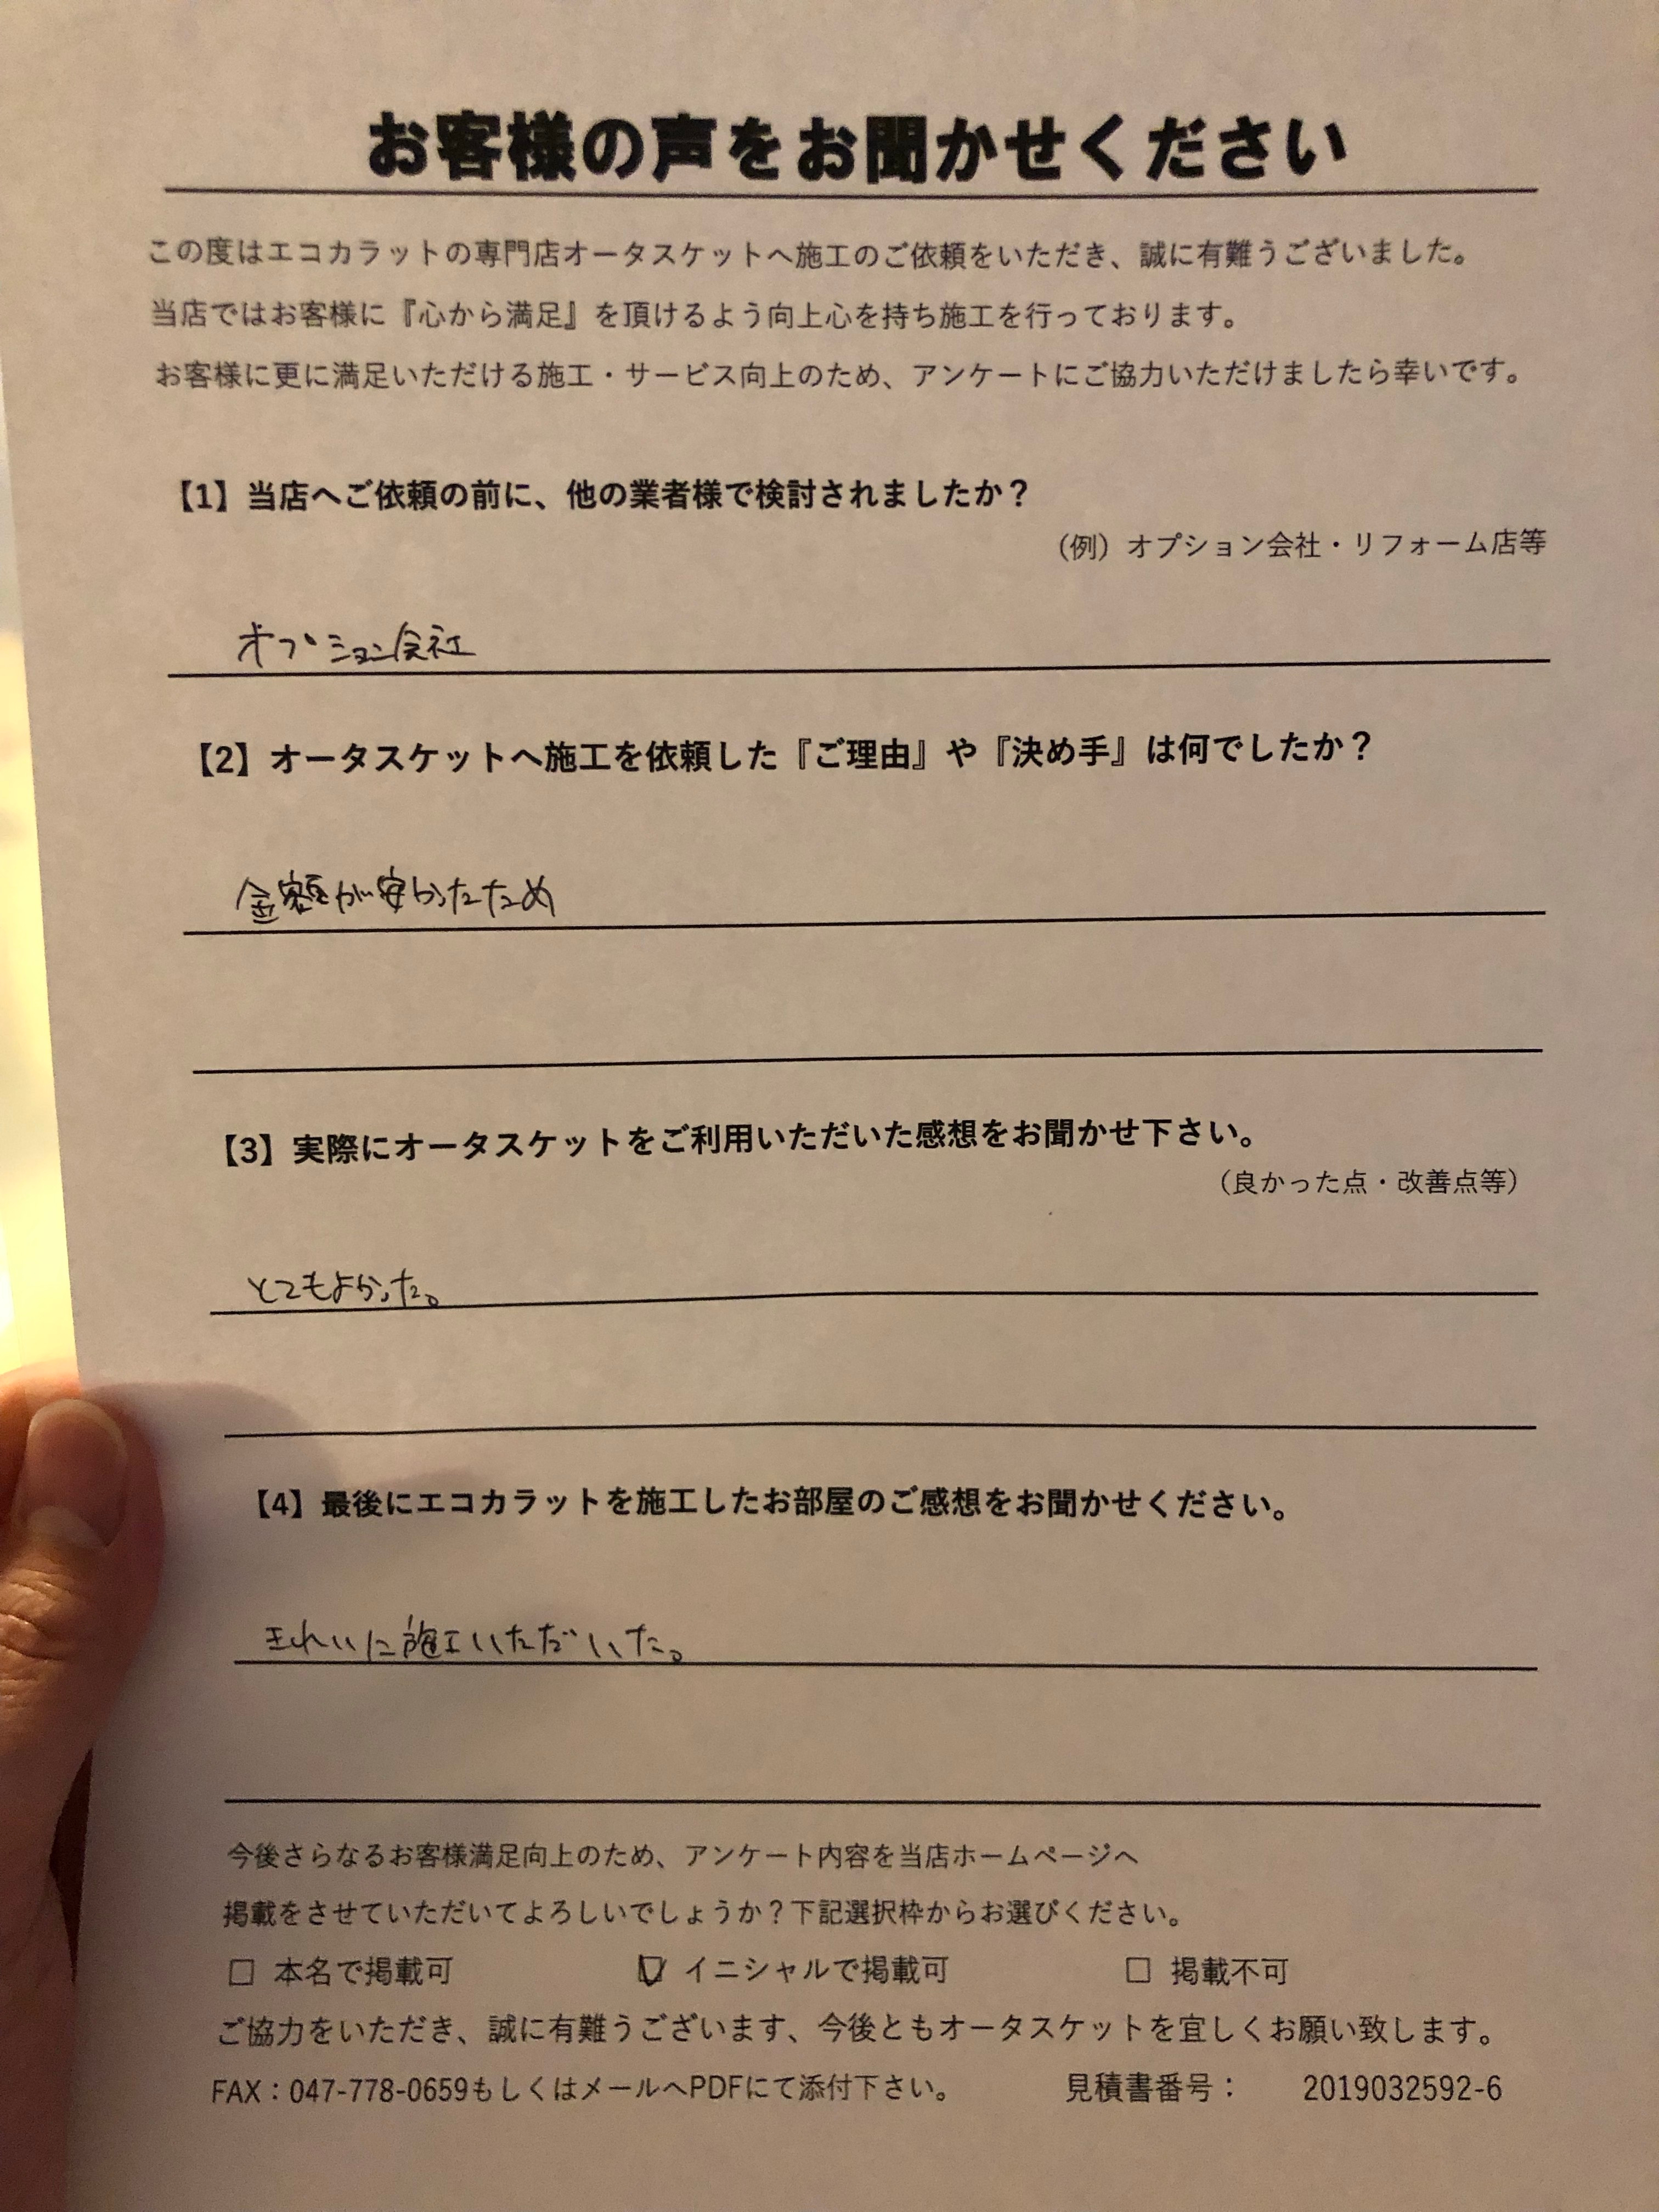 お客様の声をお聞かせください
この度はエコカラットの専門店オータスケットへ施工のご依頼をいただき、誠に有難うございました。
当店ではお客様に『心から満足』を頂けるよう向上心を持ち施工を行っております。
お客様に更に満足いただける施工・サービス向上のため、アンケートにご協力いただけましたら幸いです。
【1】当店へご依頼の前に、他の業者様で検討されましたか？
（例）オプション会社・リフォーム店等
オプション会社
【2】オータスケットへ施工を依頼した『ご理由』や『決め手』は何でしたか？
金額が安かったため
【3】実際にオータスケットをご利用いただいた感想をお聞かせ下さい。
（良かった点・改善点等）
とてもよかった。
【4】最後にエコカラットを施工したお部屋のご感想をお聞かせください。
きれいに施工いただいた。
今後さらなるお客様満足向上のため、アンケート内容を当店ホームページへ
掲載をさせていただいてよろしいでしょうか？下記選択枠からお選びください。
□ 本名で掲載可 ☑ イニシャルで掲載可 □ 掲載不可
ご協力をいただき、誠に有難うございます、今後ともオータスケットを宜しくお願い致します。
FAX：047-778-0659もしくはメールへPDFにて添付下さい。 見積書番号： 2019032592-6